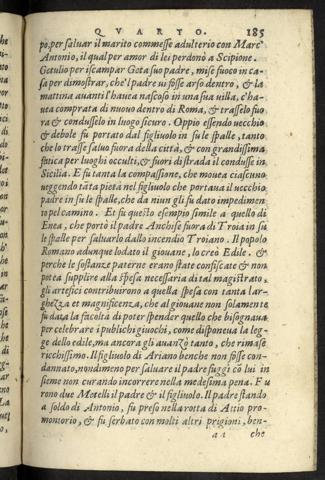 QVARTO. 185
po, per saluar il marito commesse adulterio con Marc'
Antonio, il qual per amor di lei perdonò a Scipione.
Getulio per iscampar Geta suo padre, mise fuoco in ca-
sa per dimostrar, che'l padre ui fosse arso dentro, & la
mattina auanti l'haueua nascoso in una sua uilla, c'ha-
uea comprata di nuouo dentro di Roma, & trasselo fuo
ra & condusselo in luogo sicuro. Oppio essendo uecchio
& debole fu portato dal figliuolo in su le spalle, tanto
che lo trasse saluo fuora della città, & con grandissima
fatica per luoghi occulti, & fuori di strada il condusse in
Sicilia. E fu tanta la compassione, che mouea ciascuno
ueggendo tāta pietà nel figliuolo che portaua il uecchio
padre in su le spalle, che da niun gli fu dato impedimen
to pel camino. Et fu questo esempio simile a quello di
Enea, che portò il padre Anchise fuora di Troia in su
le spalle per saluarlo dallo incendio Troiano. Il popolo
Romano adunque lodato il giouane, lo creò Edile. &
perche le sostanze paterne erano state confiscate & non
potea supplire alla spesa necessaria di tal magistrato,
gli artefici contribuirono a quella spesa con tanta lar-
ghezza et magnificenza, che al giouane non solamente
fu data la facoltà di poter spender quello che bisognaua
per celebrare i publichi giuochi, come disponeua la leg-
ge dello edile, ma ancora gli auanzò tanto, che rimase
ricchissimo. Il figliuolo di Ariano benche non fosse con-
dannato, nondimeno per saluare il padre fuggi cō lui in
sieme non curando incorrere nella medesima pena. Fu
rono due Motelli il padre & il figliuolo. Il padre stando
a soldo di Antonio, fu preso nella rotta di Attio pro-
montorio, & fu serbato con molti altri prigioni, ben-
aa che